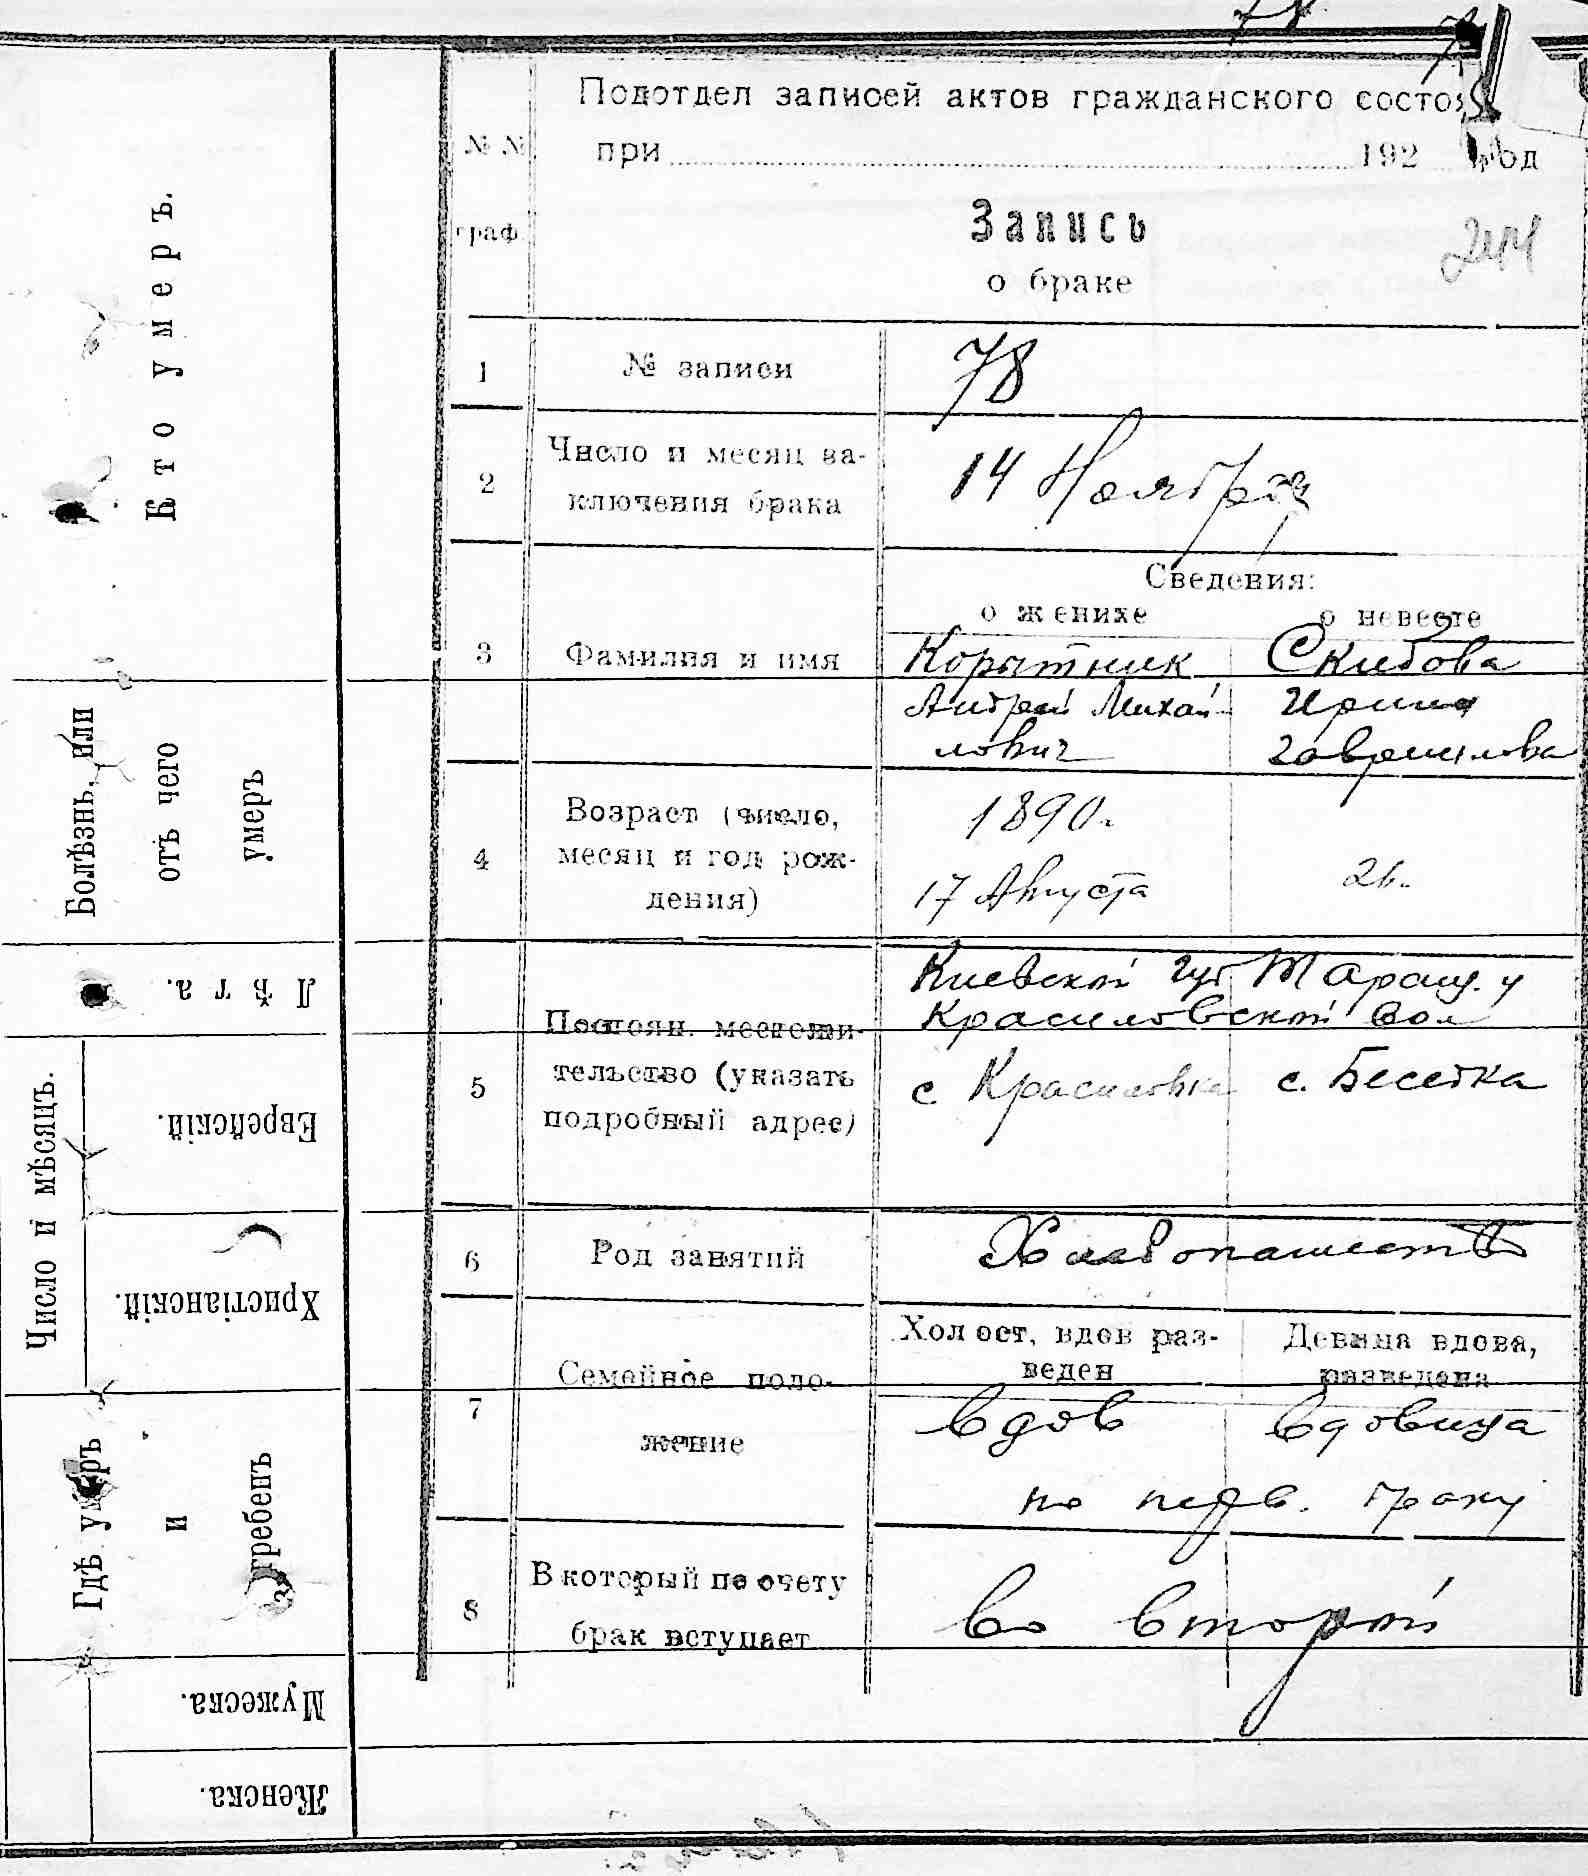 Подотдел записей актов гражданского состоя
при 192 год
№ № граф.
Запись
о браке
244
1 № записи 78
2 Число и месяц за-
ключения брака 14 Ноября
Сведения:
о женихе о невесте
3 Фамилия и имя Корытник Скибова
Андрей Михай Ирина
лович Гавриилова
4 Возраст (число,
месяц и год рож-
дения)
1890.
17 Августа
5 Постоян. местожи-
тельство (указать
подробный адрес)
Киевской губ Таращ. у
Красиловской вол
с Красиловка с. Беседка
6 Род занятий Хлебопашеств
7 Семейное поло-
жение
Холост, вдов раз-
веден
Девица вдова,
разведена
вдов вдовица
по перв. браку
8 В который по счету
брак вступает во второй
Кто умеръ.
Болѣзнь, или
отъ чего
умеръ
Лѣта.
Число и мѣсяцъ.
Еврейскій.
Христіанскій.
Гдѣ умеръ
и
погребенъ
Мужеска.
Женска.